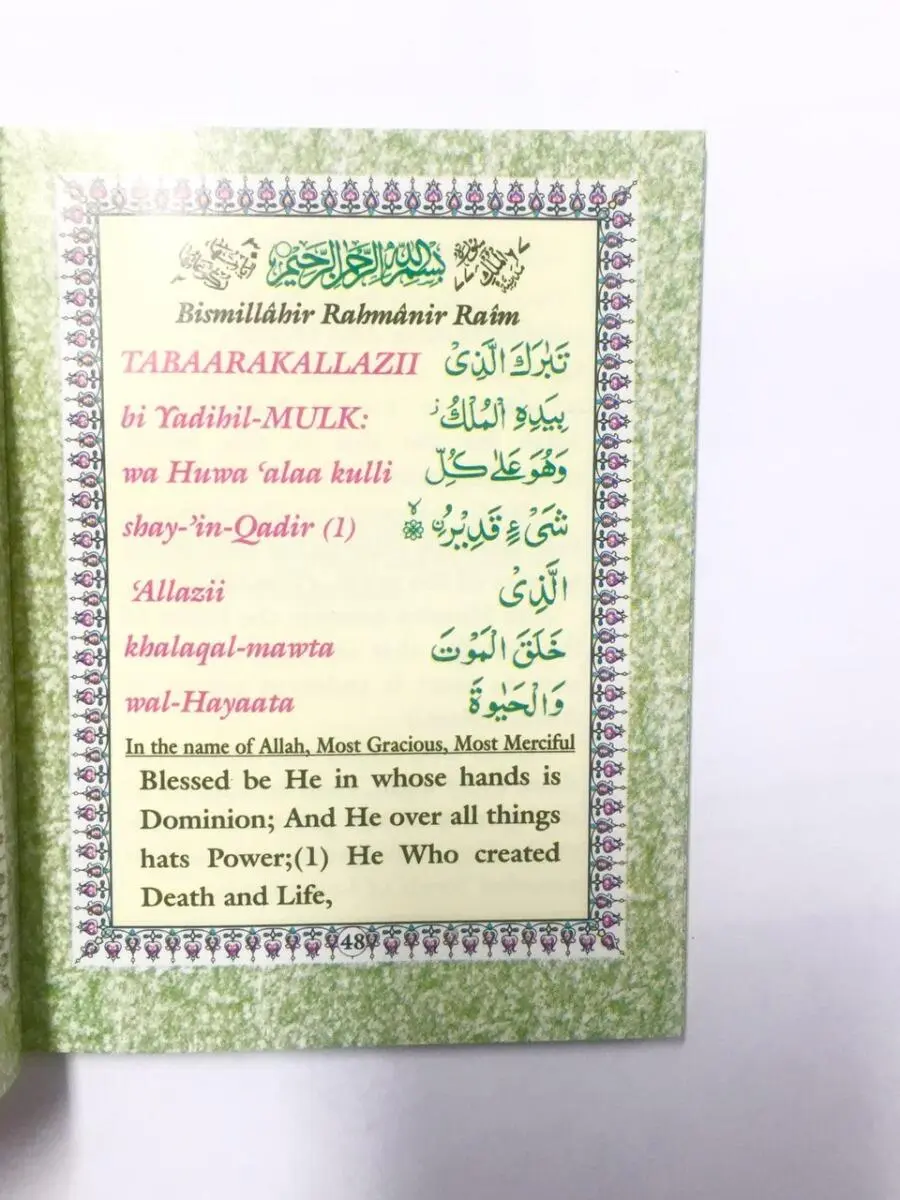 بِسْمِ اللهِ الرَّحْمٰنِ الرَّحِيْمِ
Bismillâhir Rahmânir Raîm
TABAARAKALLAZII تَبٰرَكَ الَّذِىْ
bi Yadihil-MULK: بِيَدِهِ الْمُلْكُ ز
wa Huwa ‘alaa kulli وَهُوَ عَلٰى كُلِّ
shay-’in-Qadir (1) شَىْءٍ قَدِيْرُ ۨ ۙ
‘Allazii الَّذِىْ
khalaqal-mawta خَلَقَ الْمَوْتَ
wal-Hayaata وَالْحَيٰوةَ
In the name of Allah, Most Gracious, Most Merciful
Blessed be He in whose hands is
Dominion; And He over all things
hats Power;(1) He Who created
Death and Life,
48